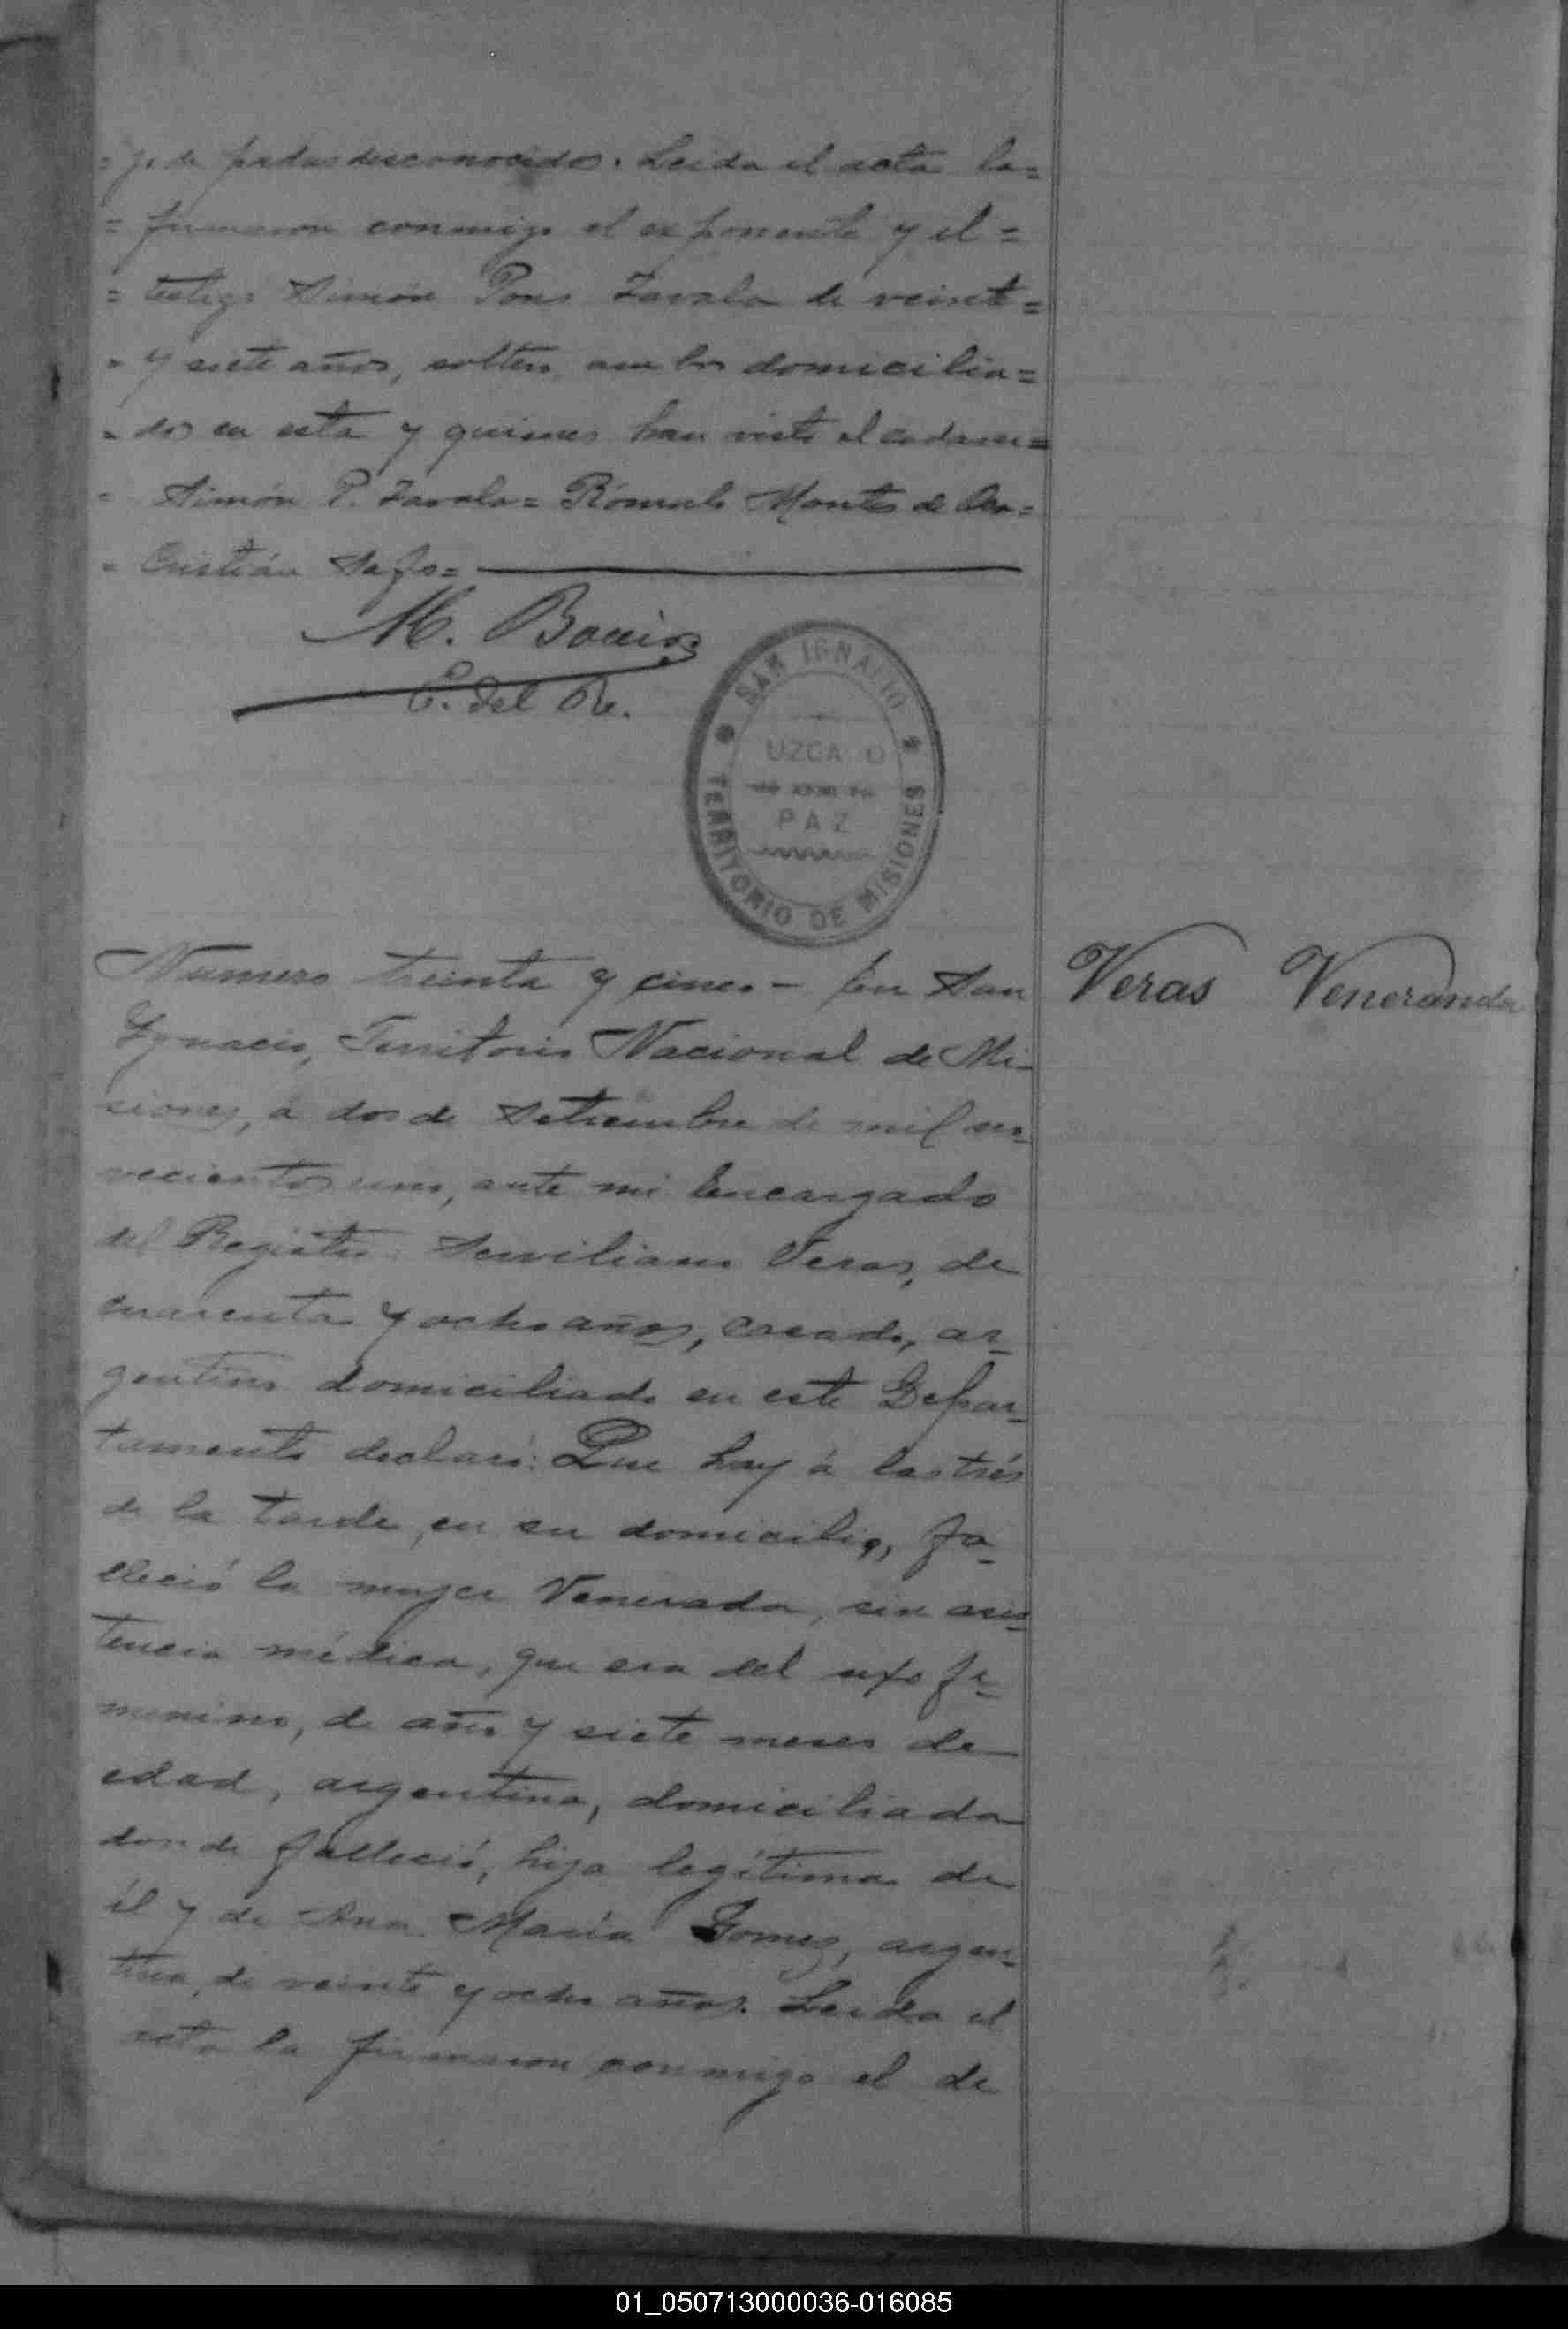 = jo de padres desconocidos. Leida el acta la=
= firmaron conmigo el exponente y el =
= testigo Simón Pons Zavala de veinte=
= y siete años, soltero, ambos domicilia=
= dos en esta y quienes han visto el cadaver=
= Simón P. Zavala = Rómulo Montes de Oca=
= Cristián =
M.
E. del R.
SAN IGNACIO
UZGA O
PAZ
TERRITORIO DE MISIONES
Numero treinta y cinco - En San
Veras Veneranda
Ygnacio, Territorio Nacional de Mi-
siones, á dos de Setiembre de mil no-
vecientos uno, ante mi Encargado
del Registro Serviliano Veras, de
cuarenta y ocho años, casado, ar-
gentino domiciliado en este Depar-
tamento declaró: Que hoy á las trés
de la tarde, en su domicilio, fa-
lleció la mujer Venerada, sin asis-
tencia médica, que era del sexo fe-
menino, de año y siete meses de
edad, argentina, domiciliada
donde falleció, hija legítima de
él y de Ana María Gomez, argen-
tina, de veinte y ocho años. Leida el
acta la firmaron conmigo el de
01_050713000036-016085